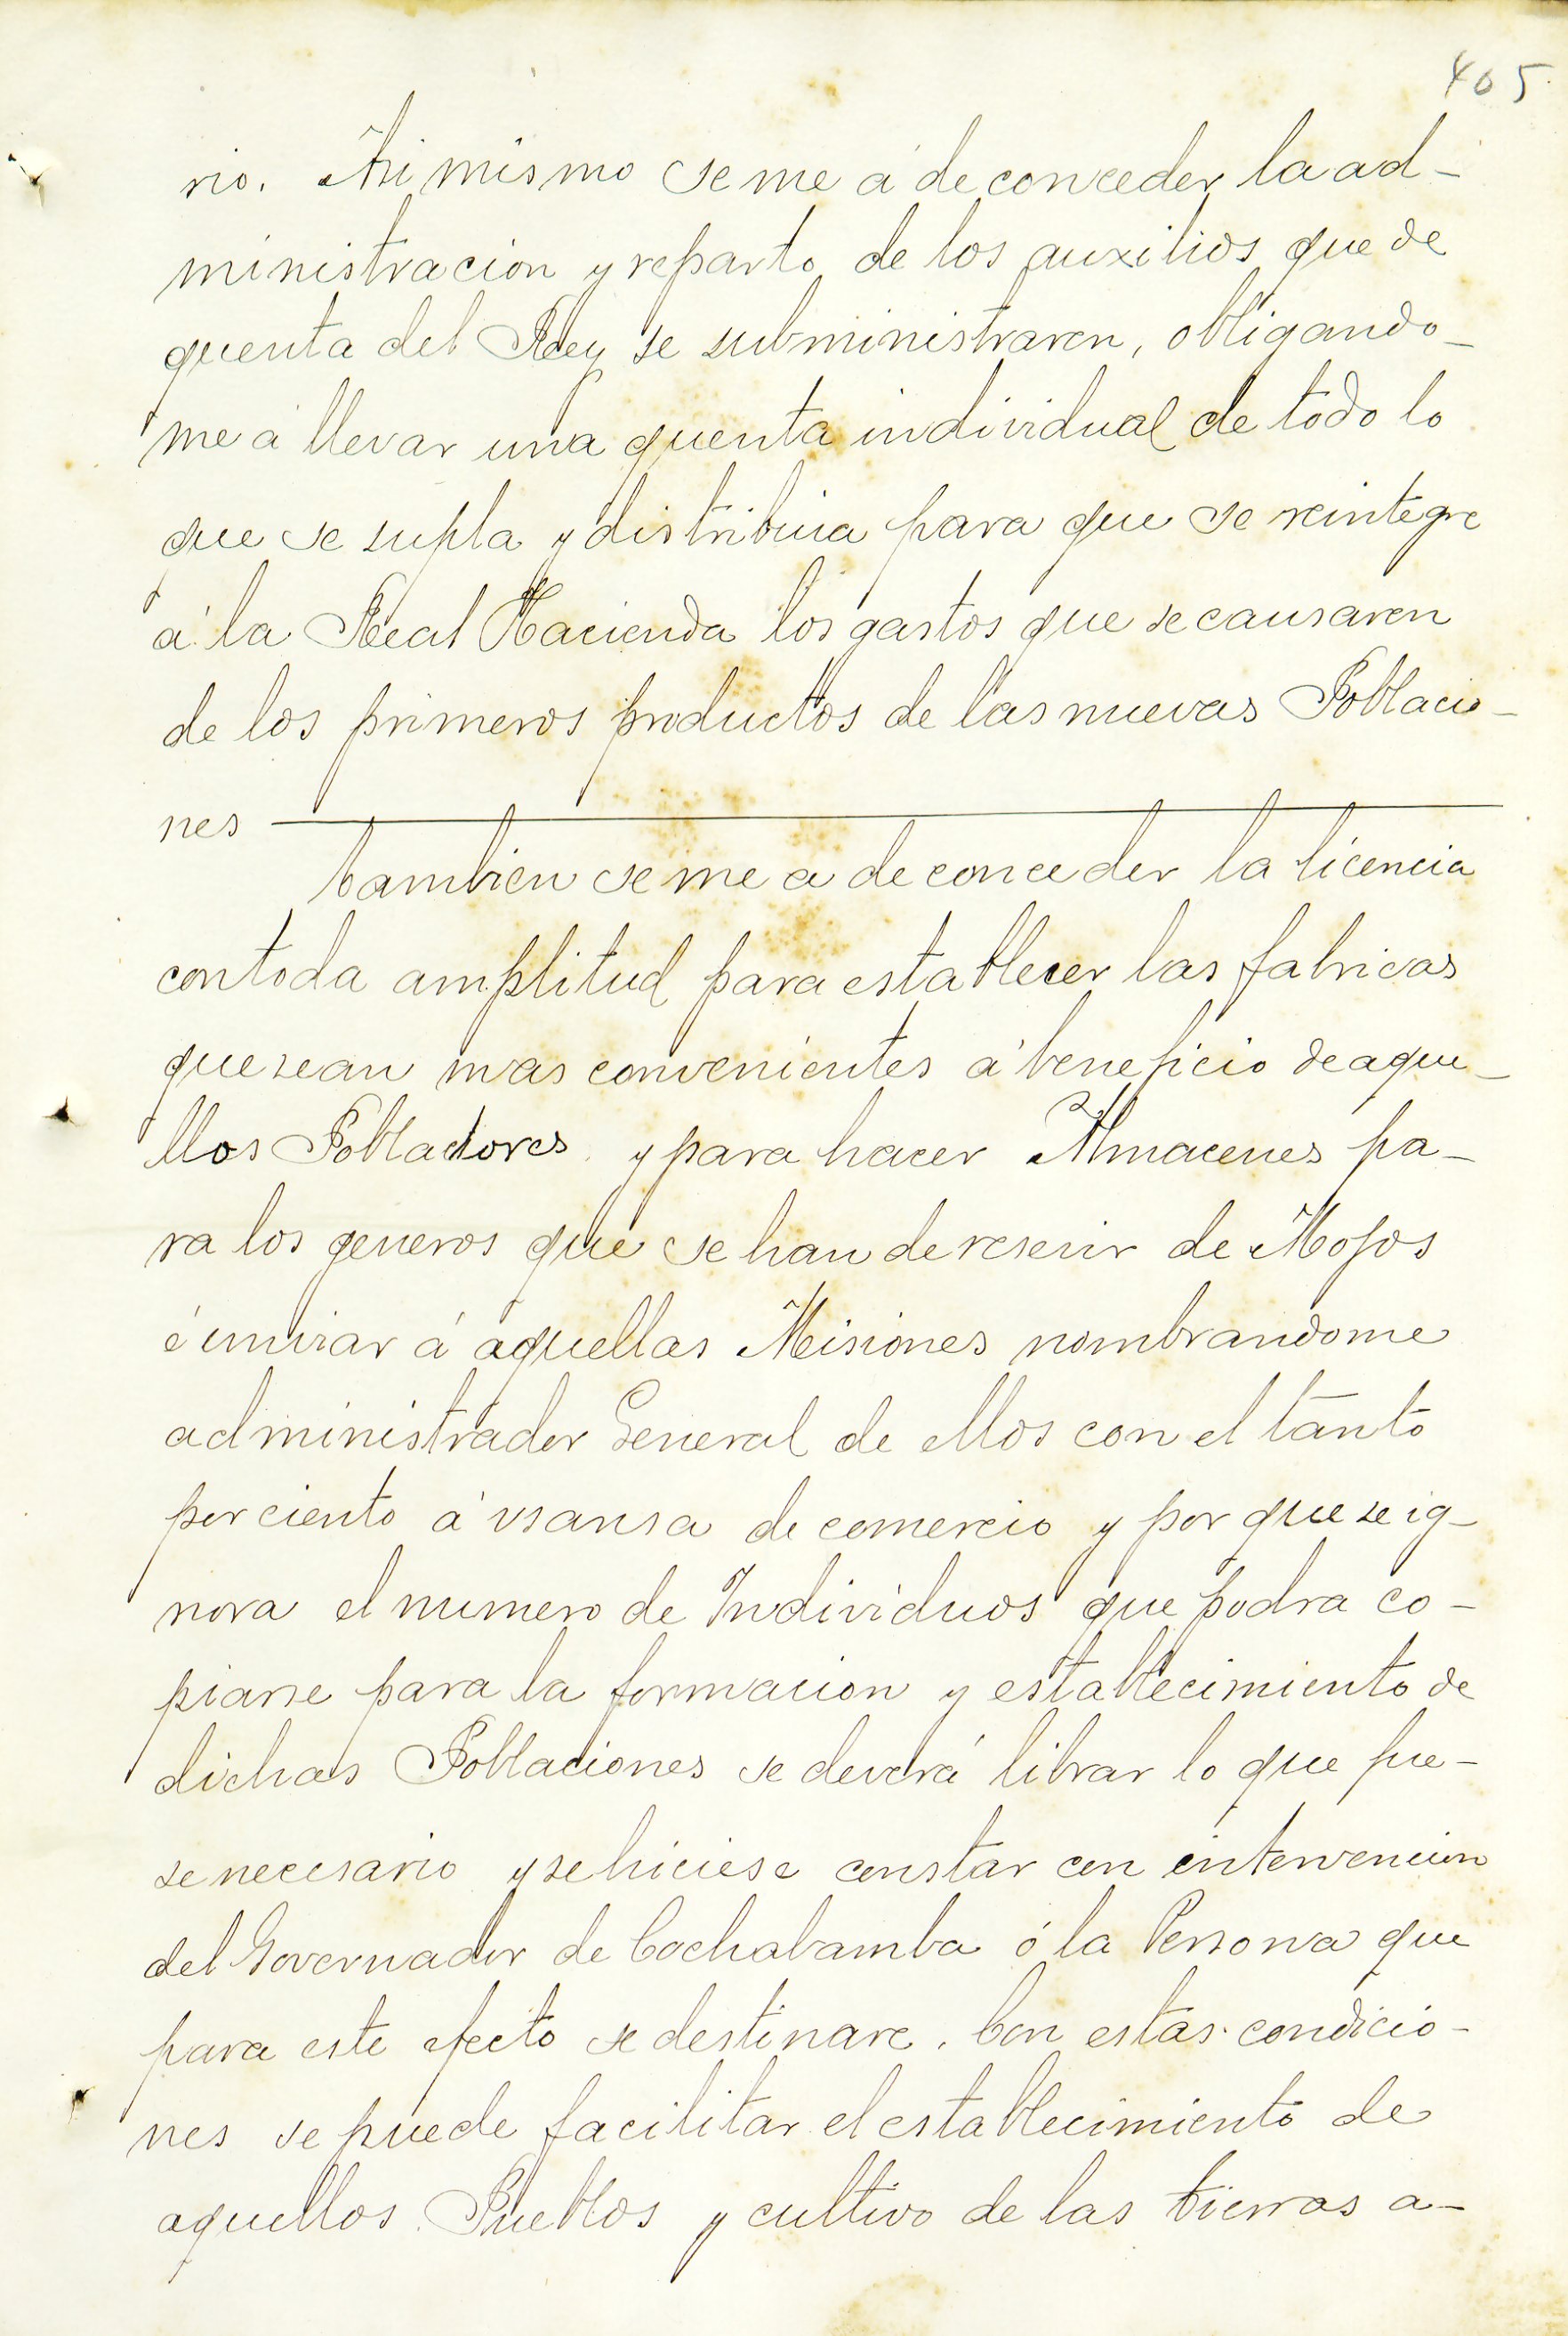 405
rio. Asi mismo se me á de conceder la ad-
ministracion y reparto de los auxilios que de
quenta del Rey se subministraren, obligando-
me á llevar una quenta individual de todo lo
que se supla y distribuia para que se reintegre
á la Real Hacienda los gastos que se causaren
de los primeros productos de las nuevas Poblacio-
nes
tambien se me a de conceder la licencia
con toda amplitud para establecer las fabricas
que sean mas convenientes á beneficio de aque-
llos Pobladores y para hacer Almacenes pa-
ra los generos que se han de reserir de Mojos
é imviar á aquellas Misiones nombrandome
administrador General de ellos con el tanto
por ciento á usansa de comercio y por que se ig-
nora el numero de Individuos que podra co-
piarse para la formacion y establecimiento de
dichas Poblaciones se deverá librar lo que fue-
se necesario y se hiciese constar con intervencion
del Governador de Cochabamba ó la Persona que
para este efecto se destinare. Con estas condicio-
nes se puede facilitar el establecimiento de
aquellos Pueblos y cultivo de las tierras a-